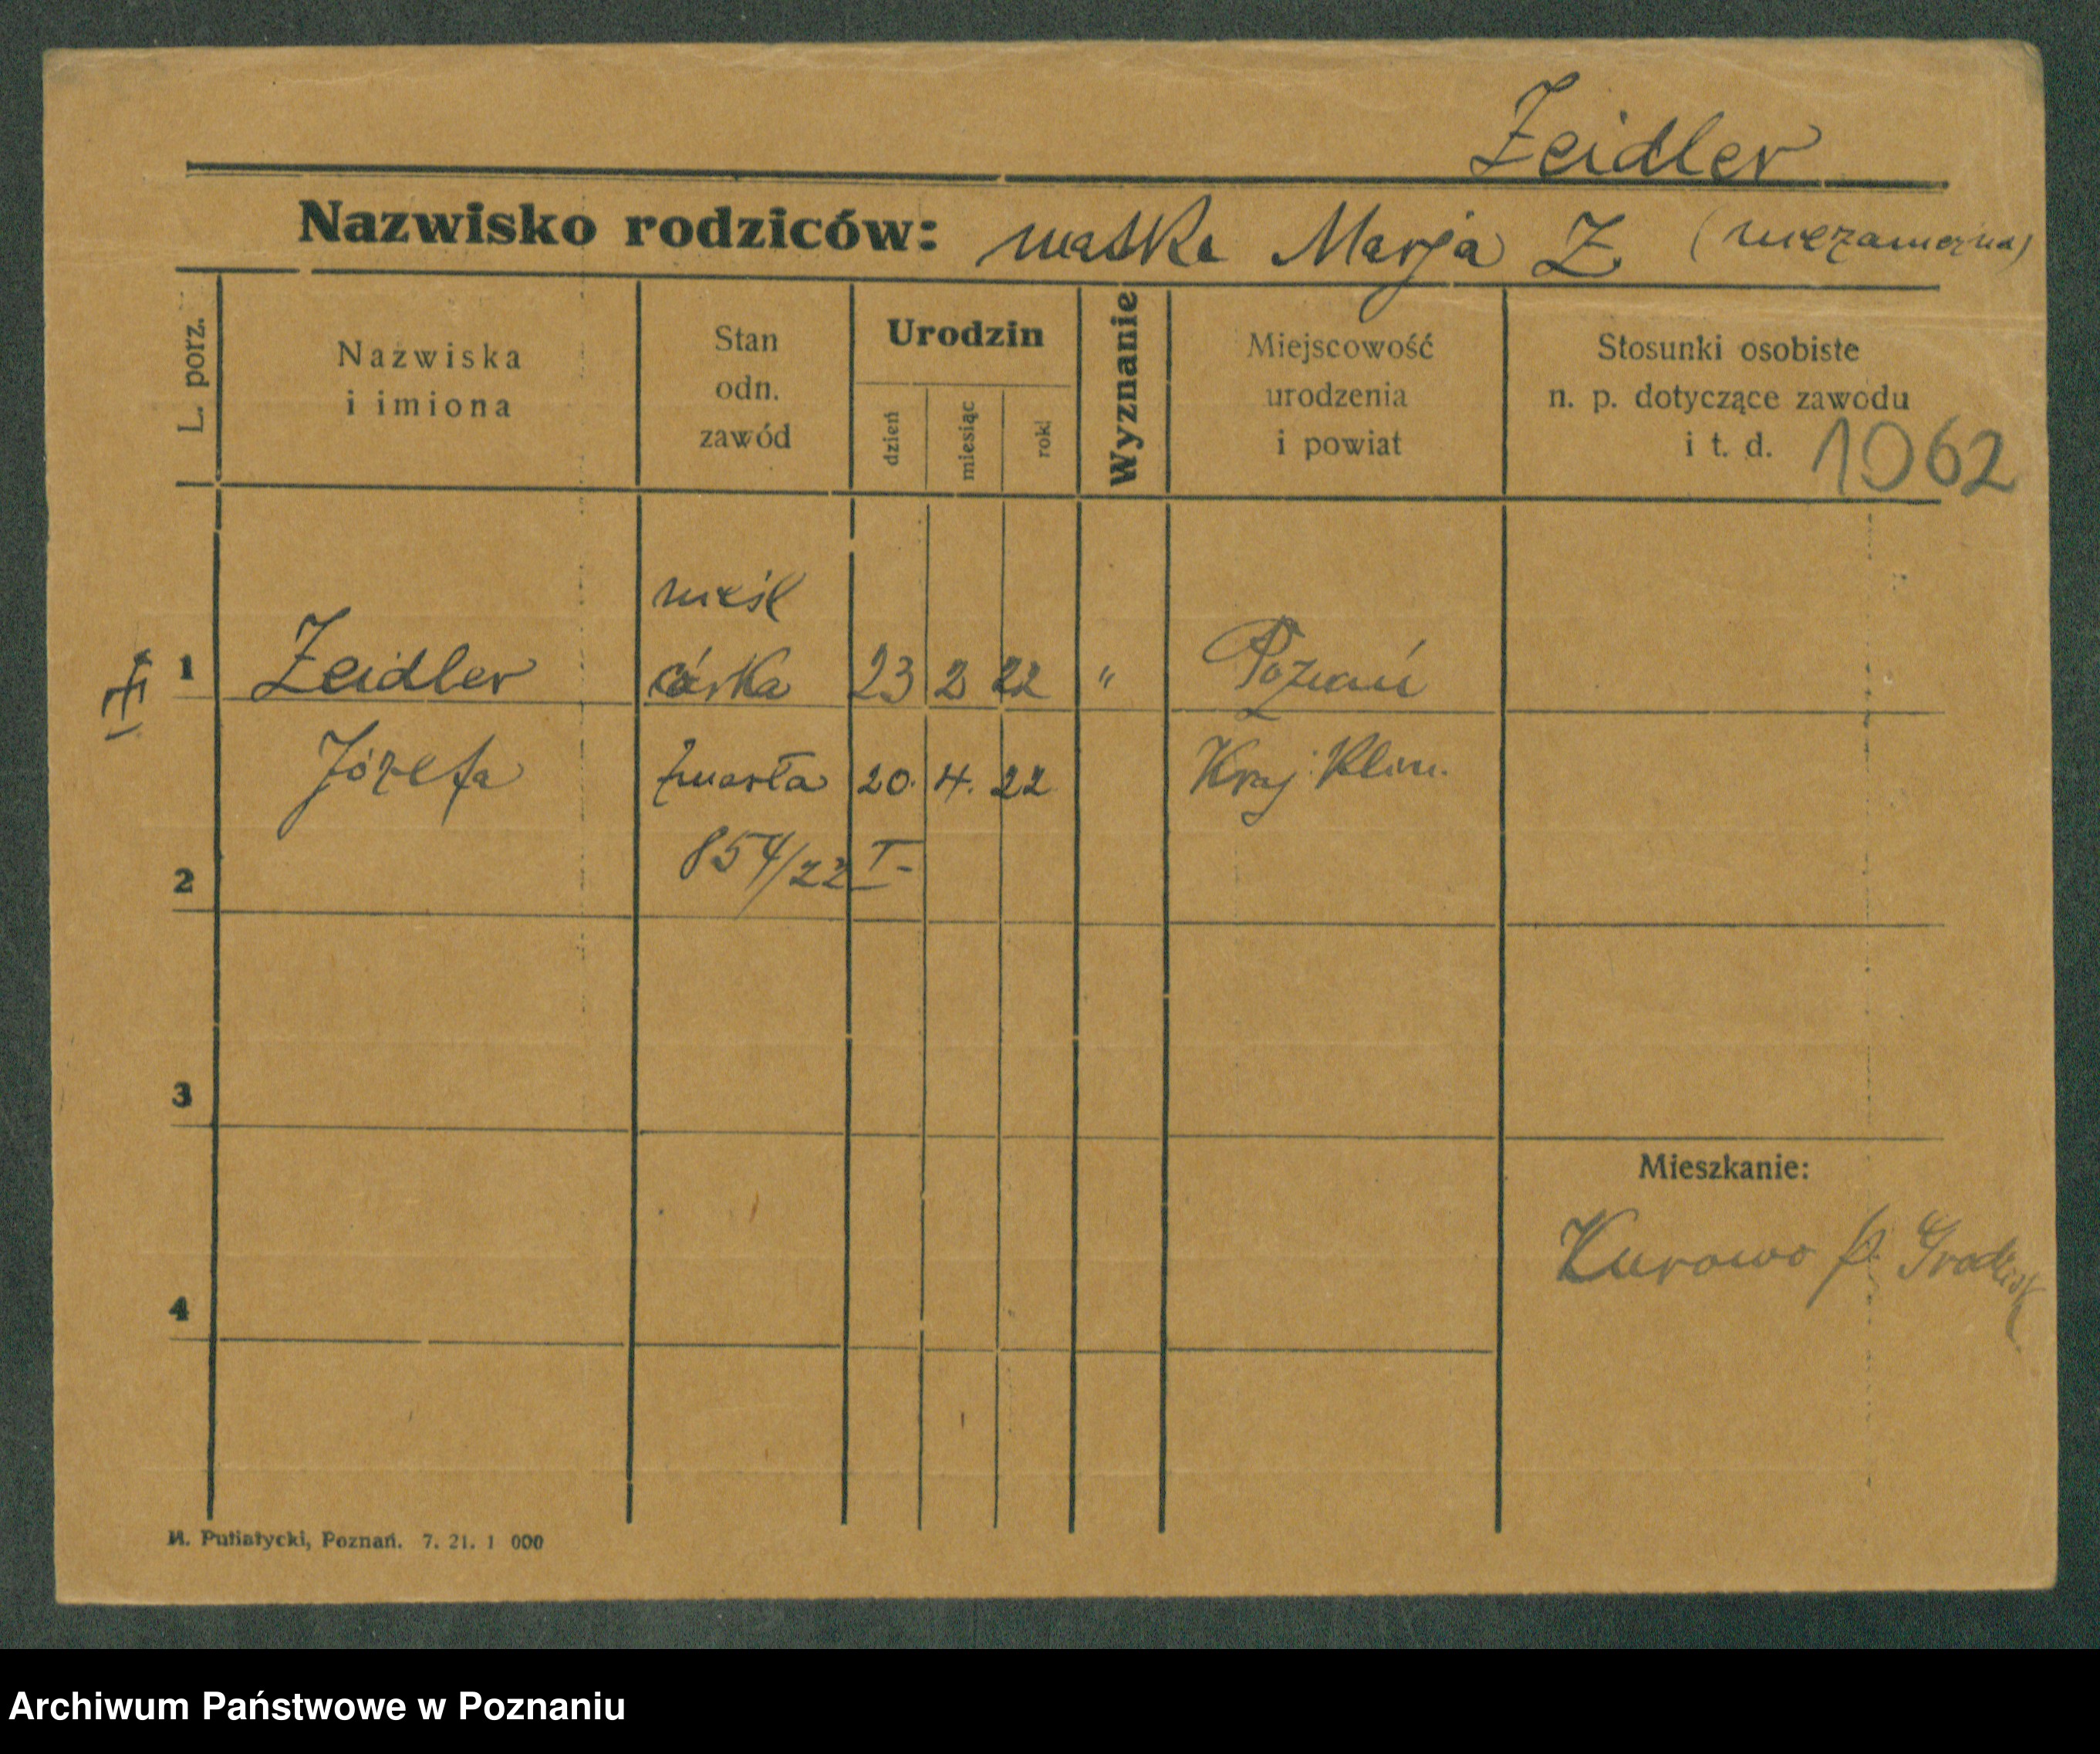 Zeidler
Nazwisko rodziców: matka Marja Z. (niezamężna)
L. porz.
Nazwiska
i imiona
Stan
odn.
zawód
Urodzin
dzień
miesiąc
rok
Wyznanie
Miejscowość
urodzenia
i powiat
Stosunki osobiste
n. p. dotyczące zawodu
i t. d.
1062
nieśl
1 Zeidler córka 23 2 22 " Poznań
Józefa zmarła 20. 4. 22 Kraj. Klin.
854/22 I
2
3
4
Mieszkanie:
Kurowo p. Grodzisk
M. Putiatycki, Poznań. 7. 21. 1 000
Archiwum Państwowe w Poznaniu